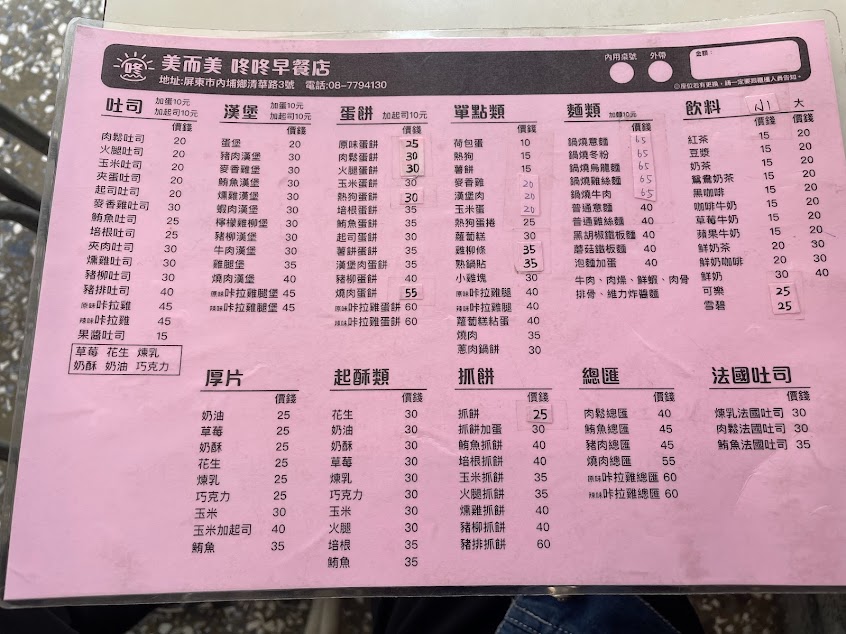 咚 美而美 咚咚早餐店
地址:屏東市內埔鄉清華路3號 電話:08-7794130
內用桌號 外帶 金額:
◎座位若有更換,請一定要跟櫃檯人員告知。
吐司 加蛋10元 加起司10元
價錢
肉鬆吐司 20
火腿吐司 20
玉米吐司 20
夾蛋吐司 20
起司吐司 20
麥香雞吐司 30
鮪魚吐司 25
培根吐司 25
夾肉吐司 30
燻雞吐司 30
豬柳吐司 30
豬排吐司 40
原味咔拉雞 45
辣味咔拉雞 45
果醬吐司 15
草莓 花生 煉乳
奶酥 奶油 巧克力
漢堡 加蛋10元 加起司10元
價錢
蛋堡 20
豬肉漢堡 30
麥香雞堡 30
鮪魚漢堡 30
燻雞漢堡 30
蝦肉漢堡 30
檸檬雞柳堡 30
豬柳漢堡 30
牛肉漢堡 30
雞腿堡 35
燒肉漢堡 40
原味咔拉雞腿堡 45
辣味咔拉雞腿堡 45
蛋餅 加起司10元
價錢
原味蛋餅 25
肉鬆蛋餅 30
火腿蛋餅 30
玉米蛋餅 30
熱狗蛋餅 30
培根蛋餅 35
鮪魚蛋餅 35
起司蛋餅 30
薯餅蛋餅 35
漢堡肉蛋餅 35
豬柳蛋餅 40
燒肉蛋餅 55
原味咔拉雞蛋餅 60
辣味咔拉雞蛋餅 60
單點類
價錢
荷包蛋 10
熱狗 15
薯餅 15
麥香雞 20
漢堡肉 20
玉米蛋 20
熱狗蛋捲 25
蘿蔔糕 30
雞柳條 35
熱鍋貼 35
小雞塊 30
原味咔拉雞腿 40
辣味咔拉雞腿 40
蘿蔔糕粘蛋 40
燒肉 35
蔥肉鍋餅 30
麵類 加麵10元
價錢
鍋燒意麵 65
鍋燒冬粉 65
鍋燒烏龍麵 65
鍋燒雞絲麵 65
鍋燒牛肉 65
普通意麵 40
普通雞絲麵 40
黑胡椒鐵板麵 40
蘑菇鐵板麵 40
泡麵加蛋 40
牛肉、肉燥、鮮蝦、肉骨
排骨、維力炸醬麵
飲料 小 大
價錢 價錢
紅茶 15 20
豆漿 15 20
奶茶 15 20
鴛鴦奶茶 15 20
黑咖啡 15 20
咖啡牛奶 15 20
草莓牛奶 15 20
蘋果牛奶 15 20
鮮奶茶 20 30
鮮奶咖啡 20 30
鮮奶 30 40
可樂 25
雪碧 25
厚片
價錢
奶油 25
草莓 25
奶酥 25
花生 25
煉乳 25
巧克力 25
玉米 30
玉米加起司 40
鮪魚 35
起酥類
價錢
花生 30
奶油 30
奶酥 30
草莓 30
煉乳 30
巧克力 30
玉米 30
火腿 30
培根 35
鮪魚 35
抓餅
價錢
抓餅 25
抓餅加蛋 30
鮪魚抓餅 40
培根抓餅 40
玉米抓餅 35
火腿抓餅 35
燻雞抓餅 40
豬柳抓餅 40
豬排抓餅 60
總匯
價錢
肉鬆總匯 40
鮪魚總匯 45
豬肉總匯 45
燒肉總匯 55
原味咔拉雞總匯 60
辣味咔拉雞總匯 60
法國吐司
價錢
煉乳法國吐司 30
肉鬆法國吐司 30
鮪魚法國吐司 35